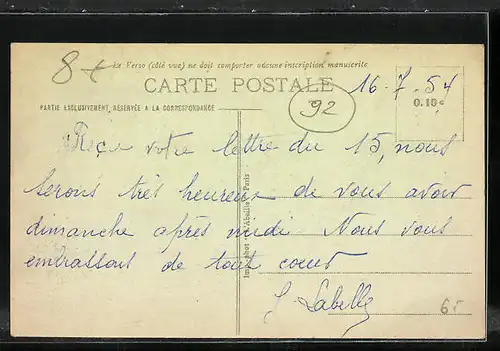 8 +
Le Verso (côté vue) ne doit comporter aucune inscription manuscrite
CARTE POSTALE
16 - 7 . 54
0.10 c
92
PARTIE EXCLUSIVEMENT RÉSERVÉE A LA CORRESPONDANCE
Reçu votre lettre du 15, nous
serons très heureux de vous avoir
dimanche après midi Nous vous
embrassons de tout coeur
J. Labelle
L'Abeille Paris